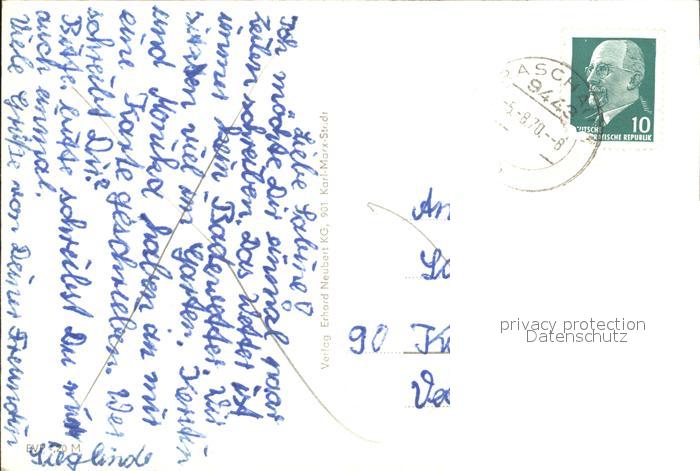 Liebe Sabine!
Ich möchte Dir einmal paar
Zeilen schreiben. Das Wetter ist
immer kein Badewetter. Wir
sind viel im Garten. Kerstin
und Monika haben an mir
eine Karte geschrieben. Wer
schreibt Dir?
Bitte, bitte schreibst Du mir
auch einmal.
Viele Grüße von Deiner Freundin
Sieglinde
EVP 0,20 M
Verlag Erhard Neubert KG, 901 Karl-Marx-Stadt
An
90
RASCHAU
9443
-5.-8.70.--8
10
DEUTSCHE
DEMOKRATISCHE REPUBLIK
privacy protection
Datenschutz